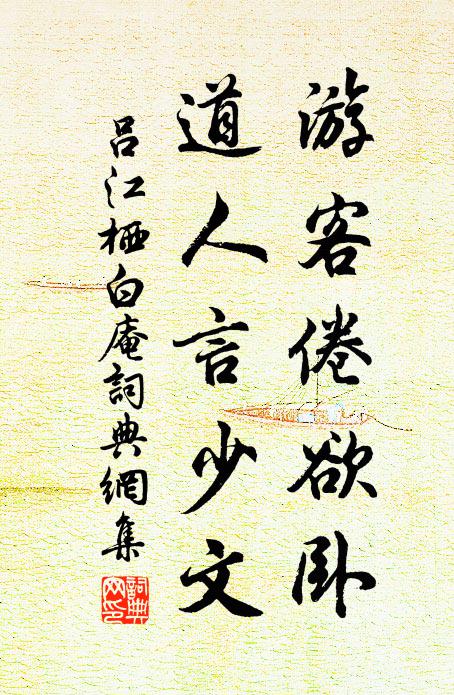 游客倦欲卧
道人言少文
呂江栖白庵詞典網集
詞典网印